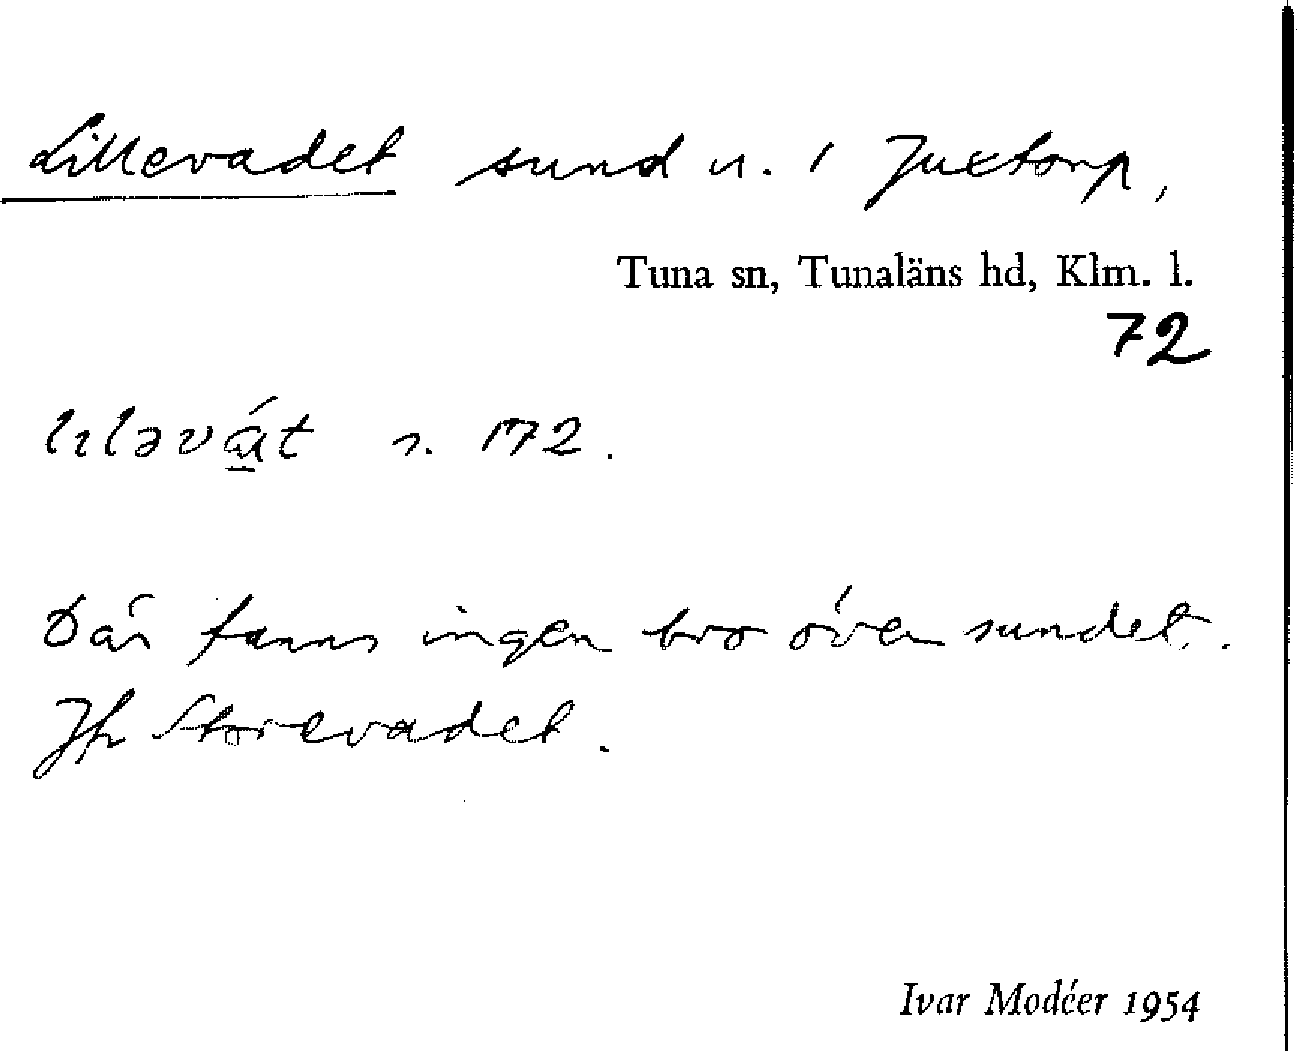 Lillevadet sund u. 1 Juxtorp,
Tuna sn, Tunaläns hd, Klm. l.
72
s. 172.
Där fanns ingen bro över sundet.
Jfr Storevadet.
Ivar Modéer 1954